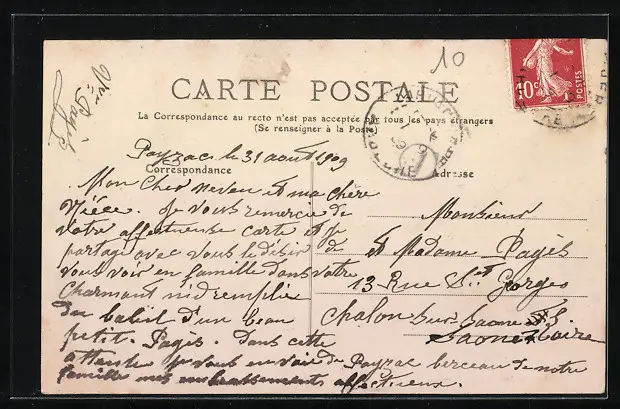 10
CARTE POSTALE
La Correspondance au recto n'est pas acceptée par tous les pays étrangers
(Se renseigner à la Poste)
10c POSTES
Payzac le 31 aout 1909
Correspondance
Adresse
Mon Cher neveu et ma chère
Nièce. Je vous remercie de
votre affectueuse carte et je
partage avec vous le désir de
vous voir en famille dans votre
Charmant nid remplie
du babil d'un beau
petit Pagès. Dans cette
attente je vous envoie de Payzac berceau de notre
famille mes embrassements affectueux.
Monsieur
et Madame Pagès
13 Rue St Georges
Chalon sur Saone
Saone Loire
Pagès